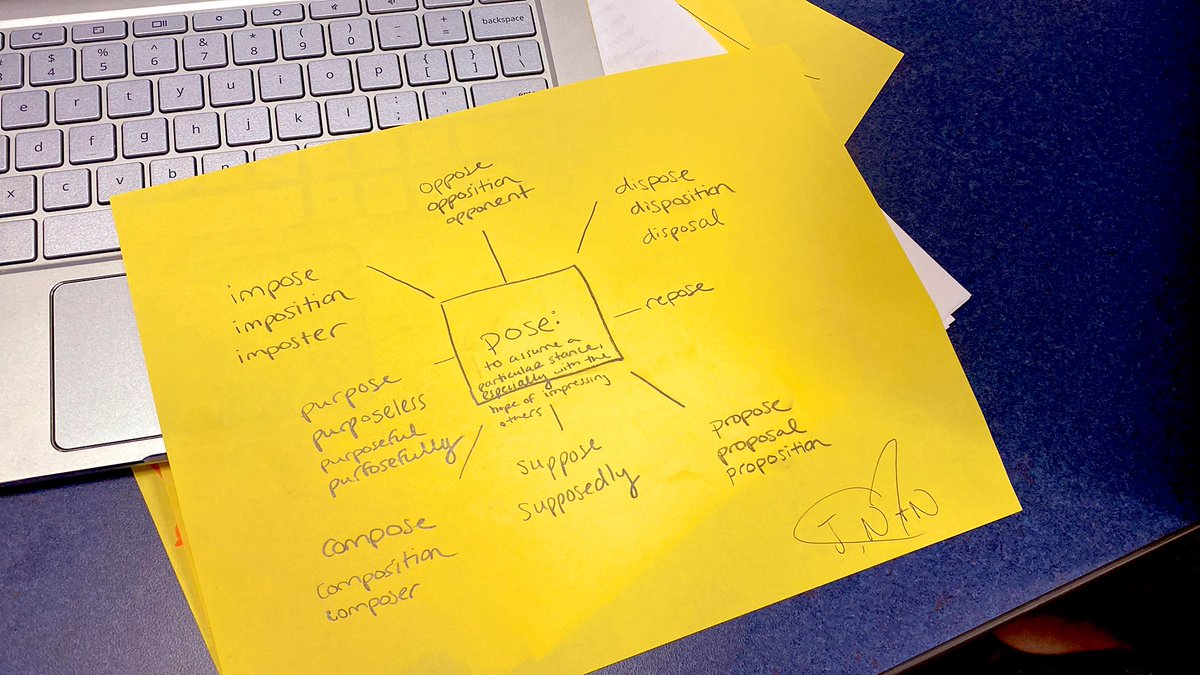 backspace
$ 4 % 5 ^ 6 & 7 * 8 ( 9 ) 0 - + =
e r t y u i o p { [ } ] | \
d f g h j k l : ; " '
x c v b
oppose
opposition
opponent
dispose
disposition
disposal
impose
imposition
imposter
repose
pose:
to assume a
particular stance,
especially with the
hope of impressing
others
purpose
purposeless
purposeful
purposefully
suppose
supposedly
propose
proposal
proposition
compose
composition
composer